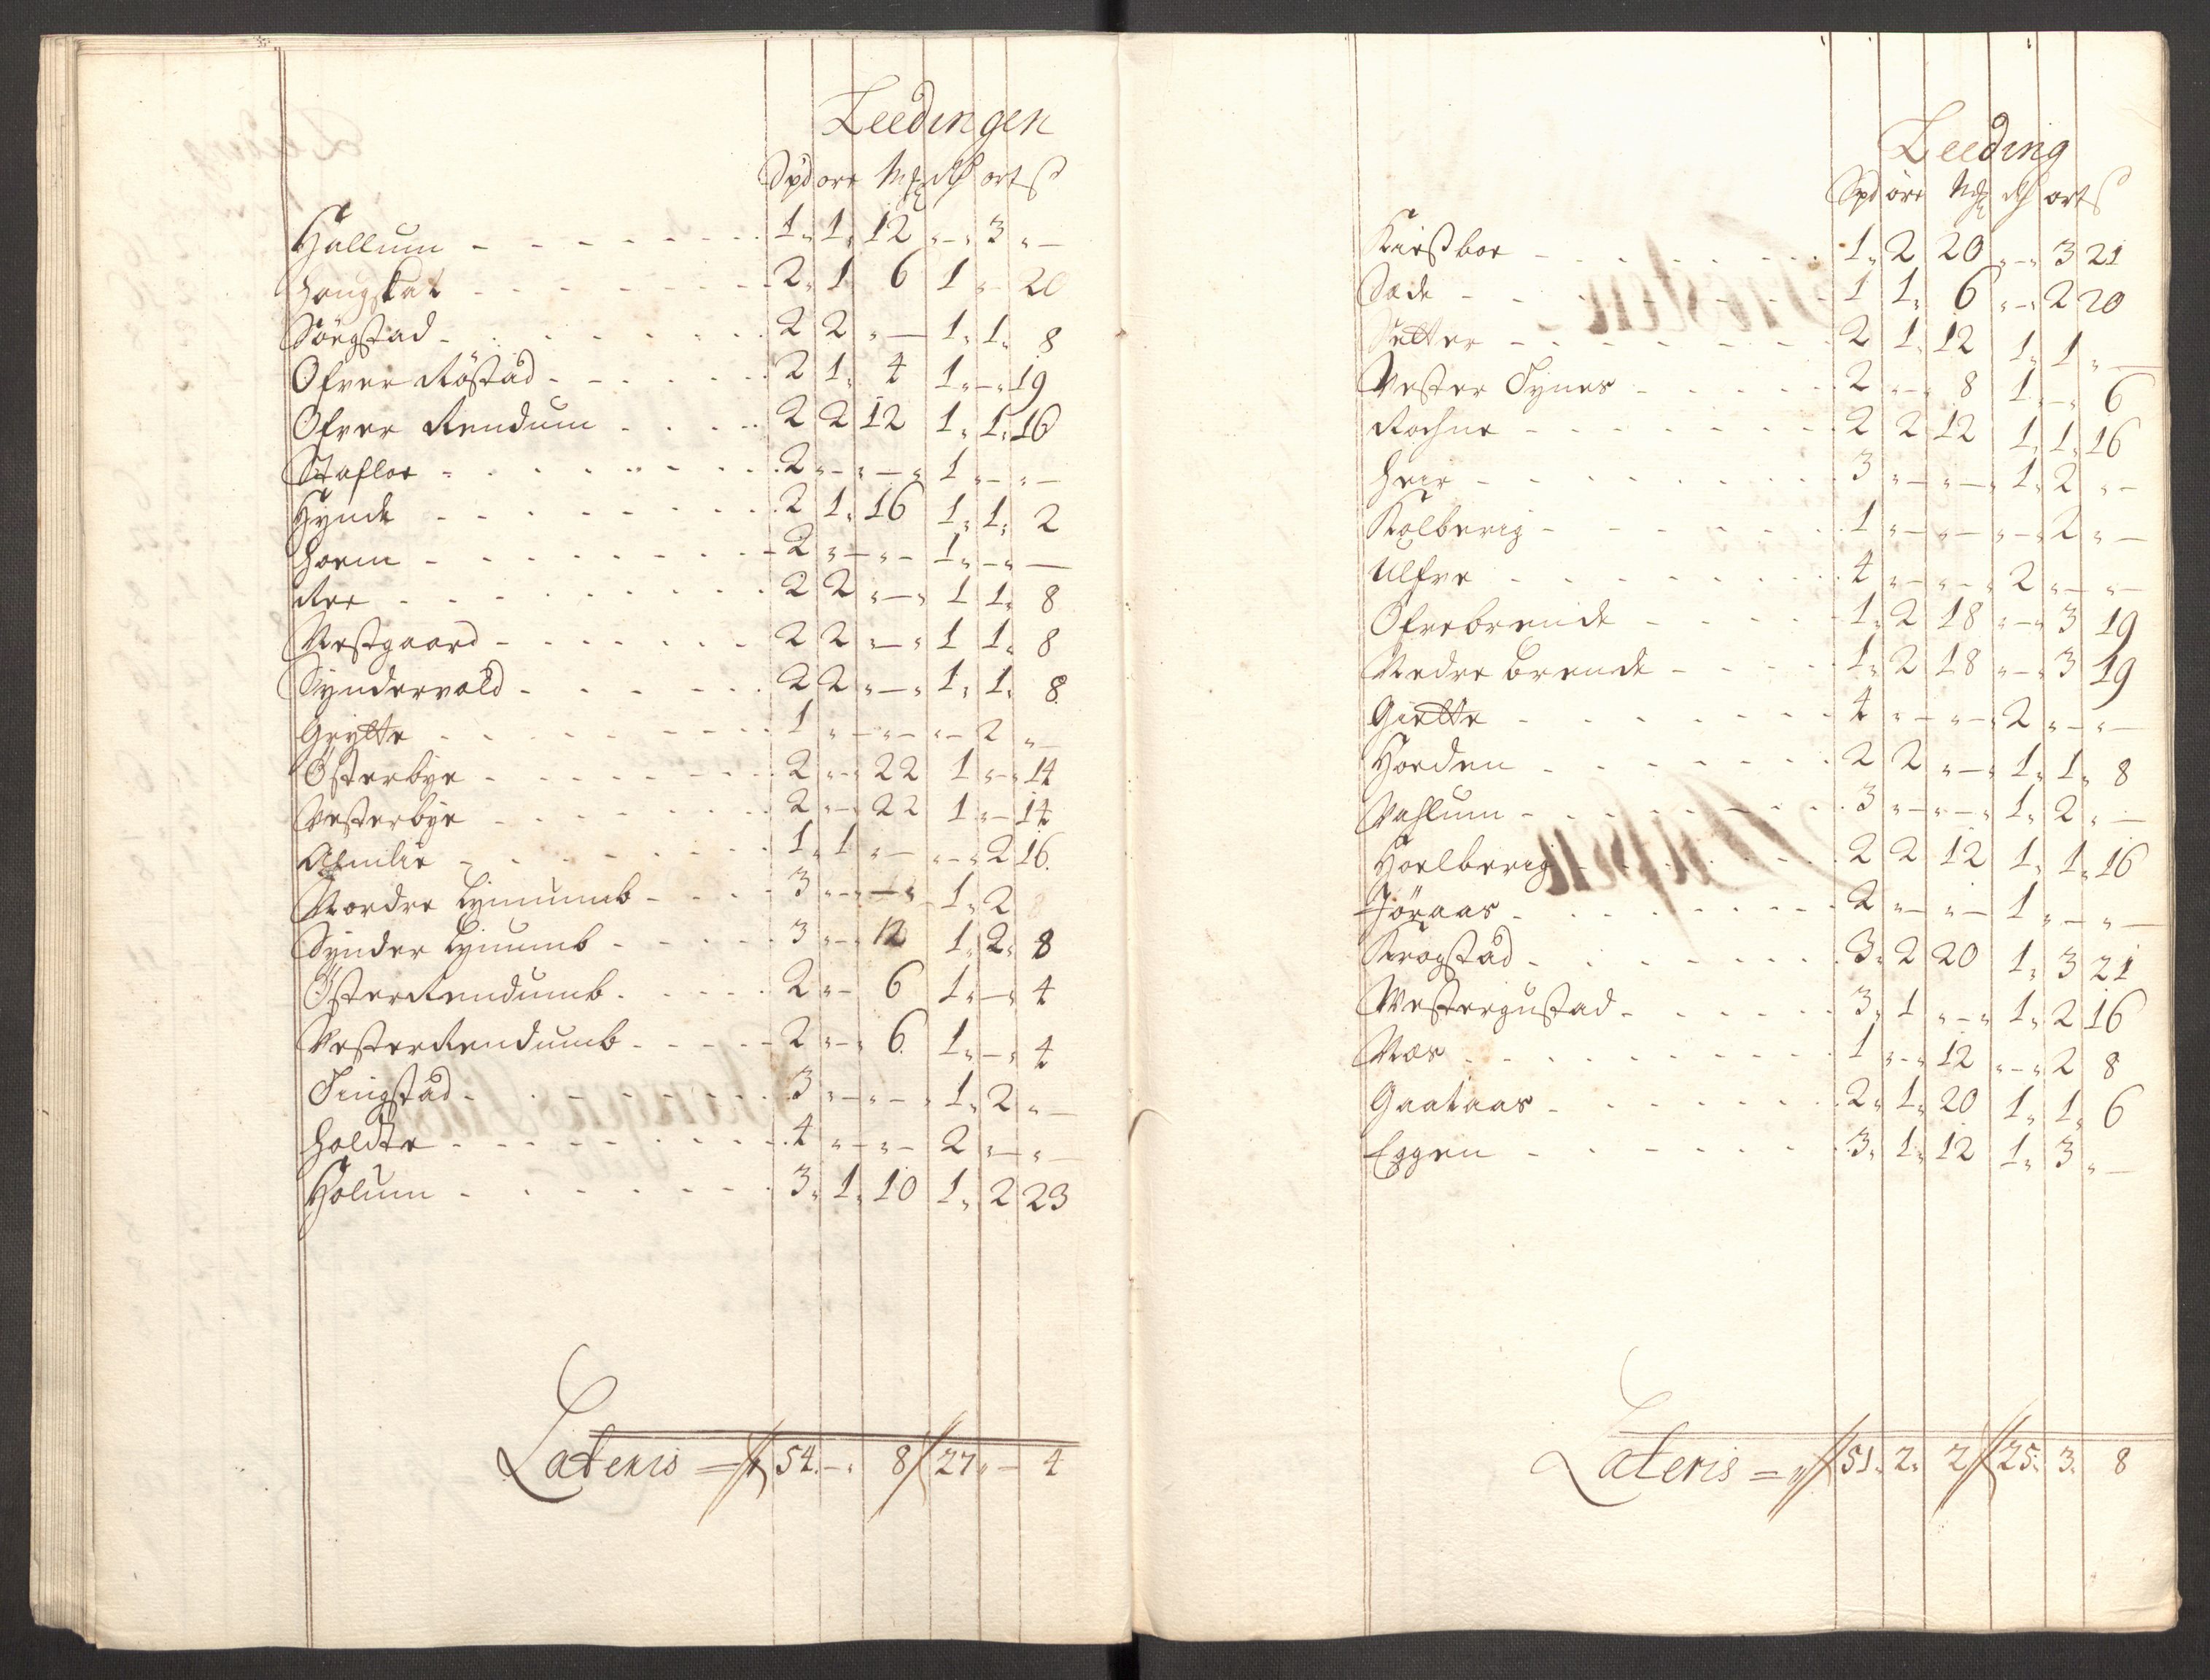 Leedingen
Spd ore Mrk rdr ort ß
Hallum - - - - - - - 1 " 1 " 12 " - " 3 " -
Haugstat - - - - - - - 2 " 1 6 1 " - 20
Sörgstad - - - - - - - 2 2 " - 1 " 1 " 8
Ofver Röstad - - - - - - 2 1 " 4 1 " - " 19
Ofver Rendum - - - - 2 2 12 1 " 1 " 16
Stafloe - - - - - - - - 2 " - " - " 1 " - " -
Hynde - - - - - - - - 2 1 " 16 1 " 1 " 2
Hoem - - - - - - - - 2 " - " - 1 " - " -
Ree - - - - - - - - - 2 2 " - " 1 1 " 8
Vestgaard - - - - - - - 2 2 " - " 1 1 " 8
Syndervold - - - - - - 2 2 " - " 1 " 1 " 8
Grytte - - - - - - - - 1 " - " - " - 2 " -
Österbye - - - - - - - 2 " - " 22 1 " - " 14
Vesterbye - - - - - - - 2 " - " 22 1 " - 14
Almlie - - - - - - - - 1 " 1 " - " - " 2 16
Nordre Lÿmumb - - - - 3 " - " - " 1 " 2
Synder Lÿmumb - - - - - 3 " - " 12 1 " 2 " 8
Öster Rendumb - - - - - 2 " - 6 1 " - " 4
Vester Rendumb - - - - - 2 " - " 6 1 " - " 4
Tingstad - - - - - - - 3 " - " - " 1 " 2 " -
Holdte - - - - - - - - 4 " - " - 2 " - " -
Holum - - - - - - - 3 " 1 " 10 1 " 2 23
Lateris = 54 " - " 8 27 " - 4
Leeding
Spd öre Mrk rdr ort ß
Kirstboe - - - - - - - 1 " 2 20 " - " 3 21
Sæde - - - - - - - - 1 1 " 6 " - " 2 20
Setter - - - - - - - - 2 1 " 12 1 " 1 " -
Vester Tynes - - - - - 2 " - " 8 1 " - " 6
Rochne - - - - - - - - 2 2 12 1 " 1 " 16
Heir - - - - - - - - 3 " - " - " 1 " 2 " -
Kolberig - - - - - - - 1 " - " - " - " 2 " -
Ulfve - - - - - - - - 4 " - " - " 2 " - " -
Ofrebrende - - - - - 1 " 2 18 " - " 3 19
Nedre brende - - - - - 1 " 2 18 " - " 3 19
Giette - - - - - - - 4 " - " - " 2 " - " -
Horden - - - - - - - 2 2 " - " 1 " 1 " 8
Vahlum - - - - - - - 3 " - " - " 1 " 2 " -
Hoelberig - - - - - - 2 2 12 1 " 1 " 16
Jöraas - - - - - - - - 2 " - " - 1 " - " -
Krogstad - - - - - - - 3 " 2 20 1 " 3 21
Westergustad - - - - - - 3 " 1 " - " 1 " 2 16
Næs - - - - - - - - - 1 " - " 12 " - " 2 8
Gaataas - - - - - - 2 " 1 " 20 1 " 1 " 6
Eggen - - - - - - - 3 " 1 " 12 1 " 3 " -
Lateris = 51 " 2 " 2 25 " 3 " 8